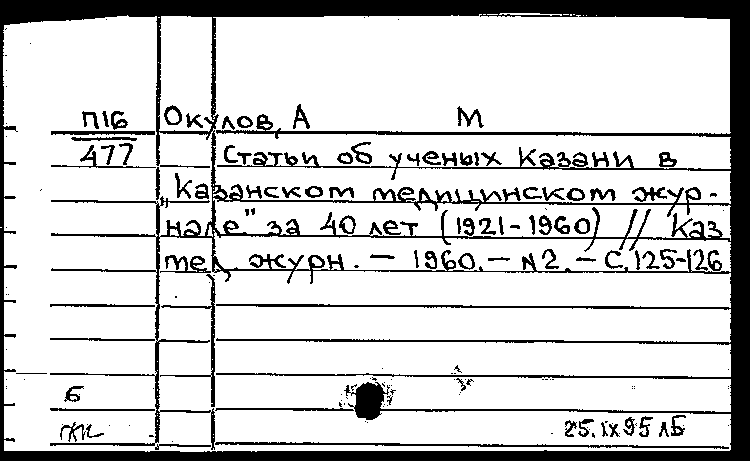 П16 Окулов, А М
477 Статьи об ученых Казани в
„Казанском медицинском жур-
нале" за 40 лет (1921-1960) // Каз
мед журн. — 1960. — N 2. — С. 125-126
Б
25.IX 95 ЛБ